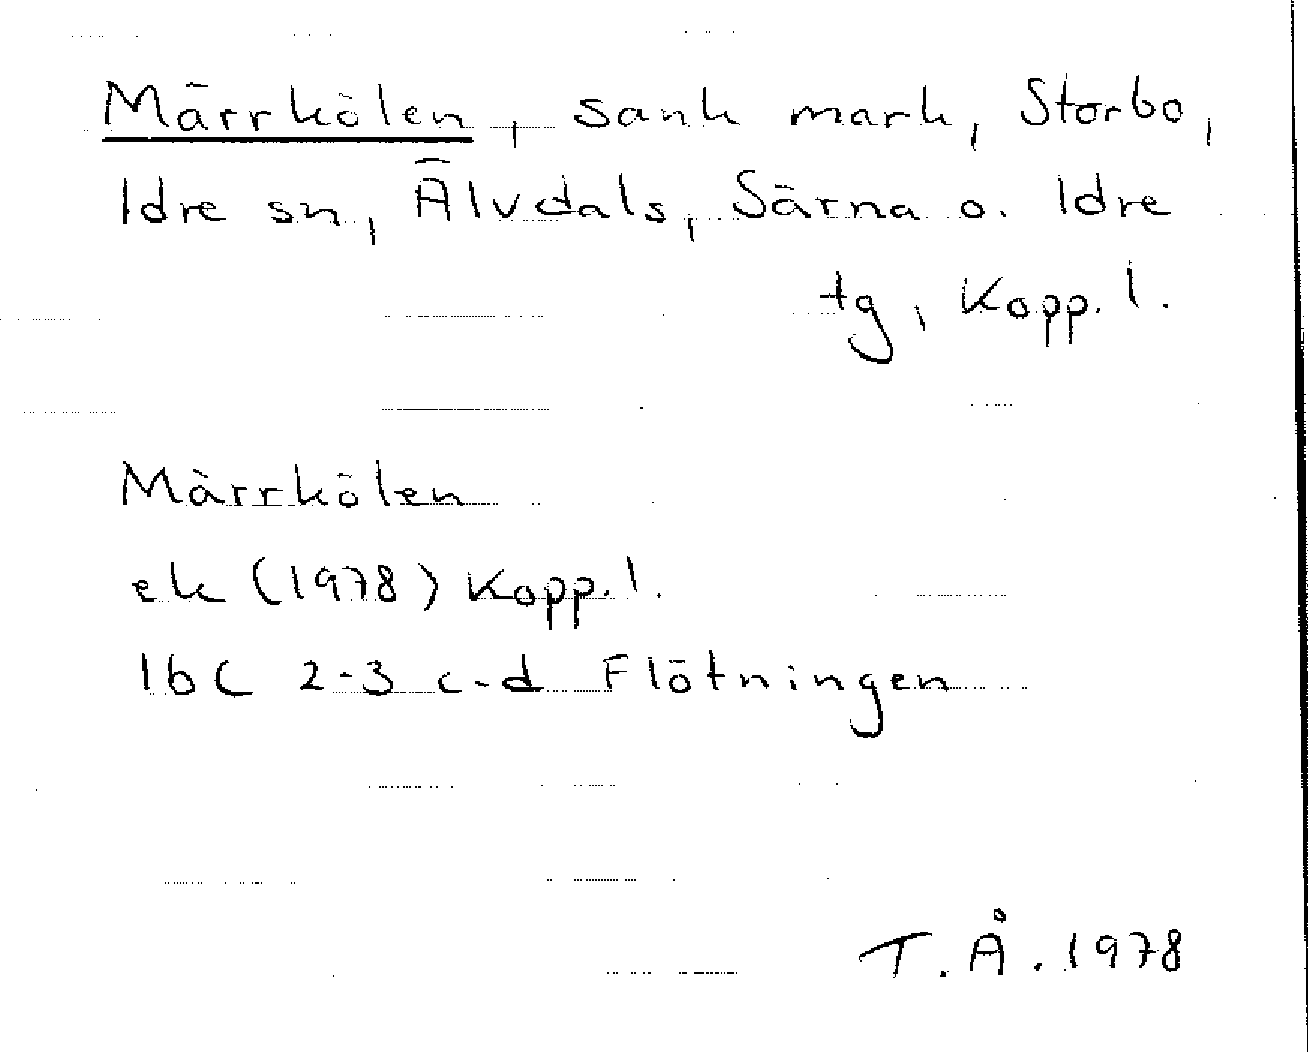 Märrkölen, sank mark, Storbo,
Idre sn, Älvdals, Särna o. Idre
tg, Kopp. l.
Märrkölen
ek (1978) Kopp. l.
16C 2-3 c-d Flötningen
T. Å. 1978